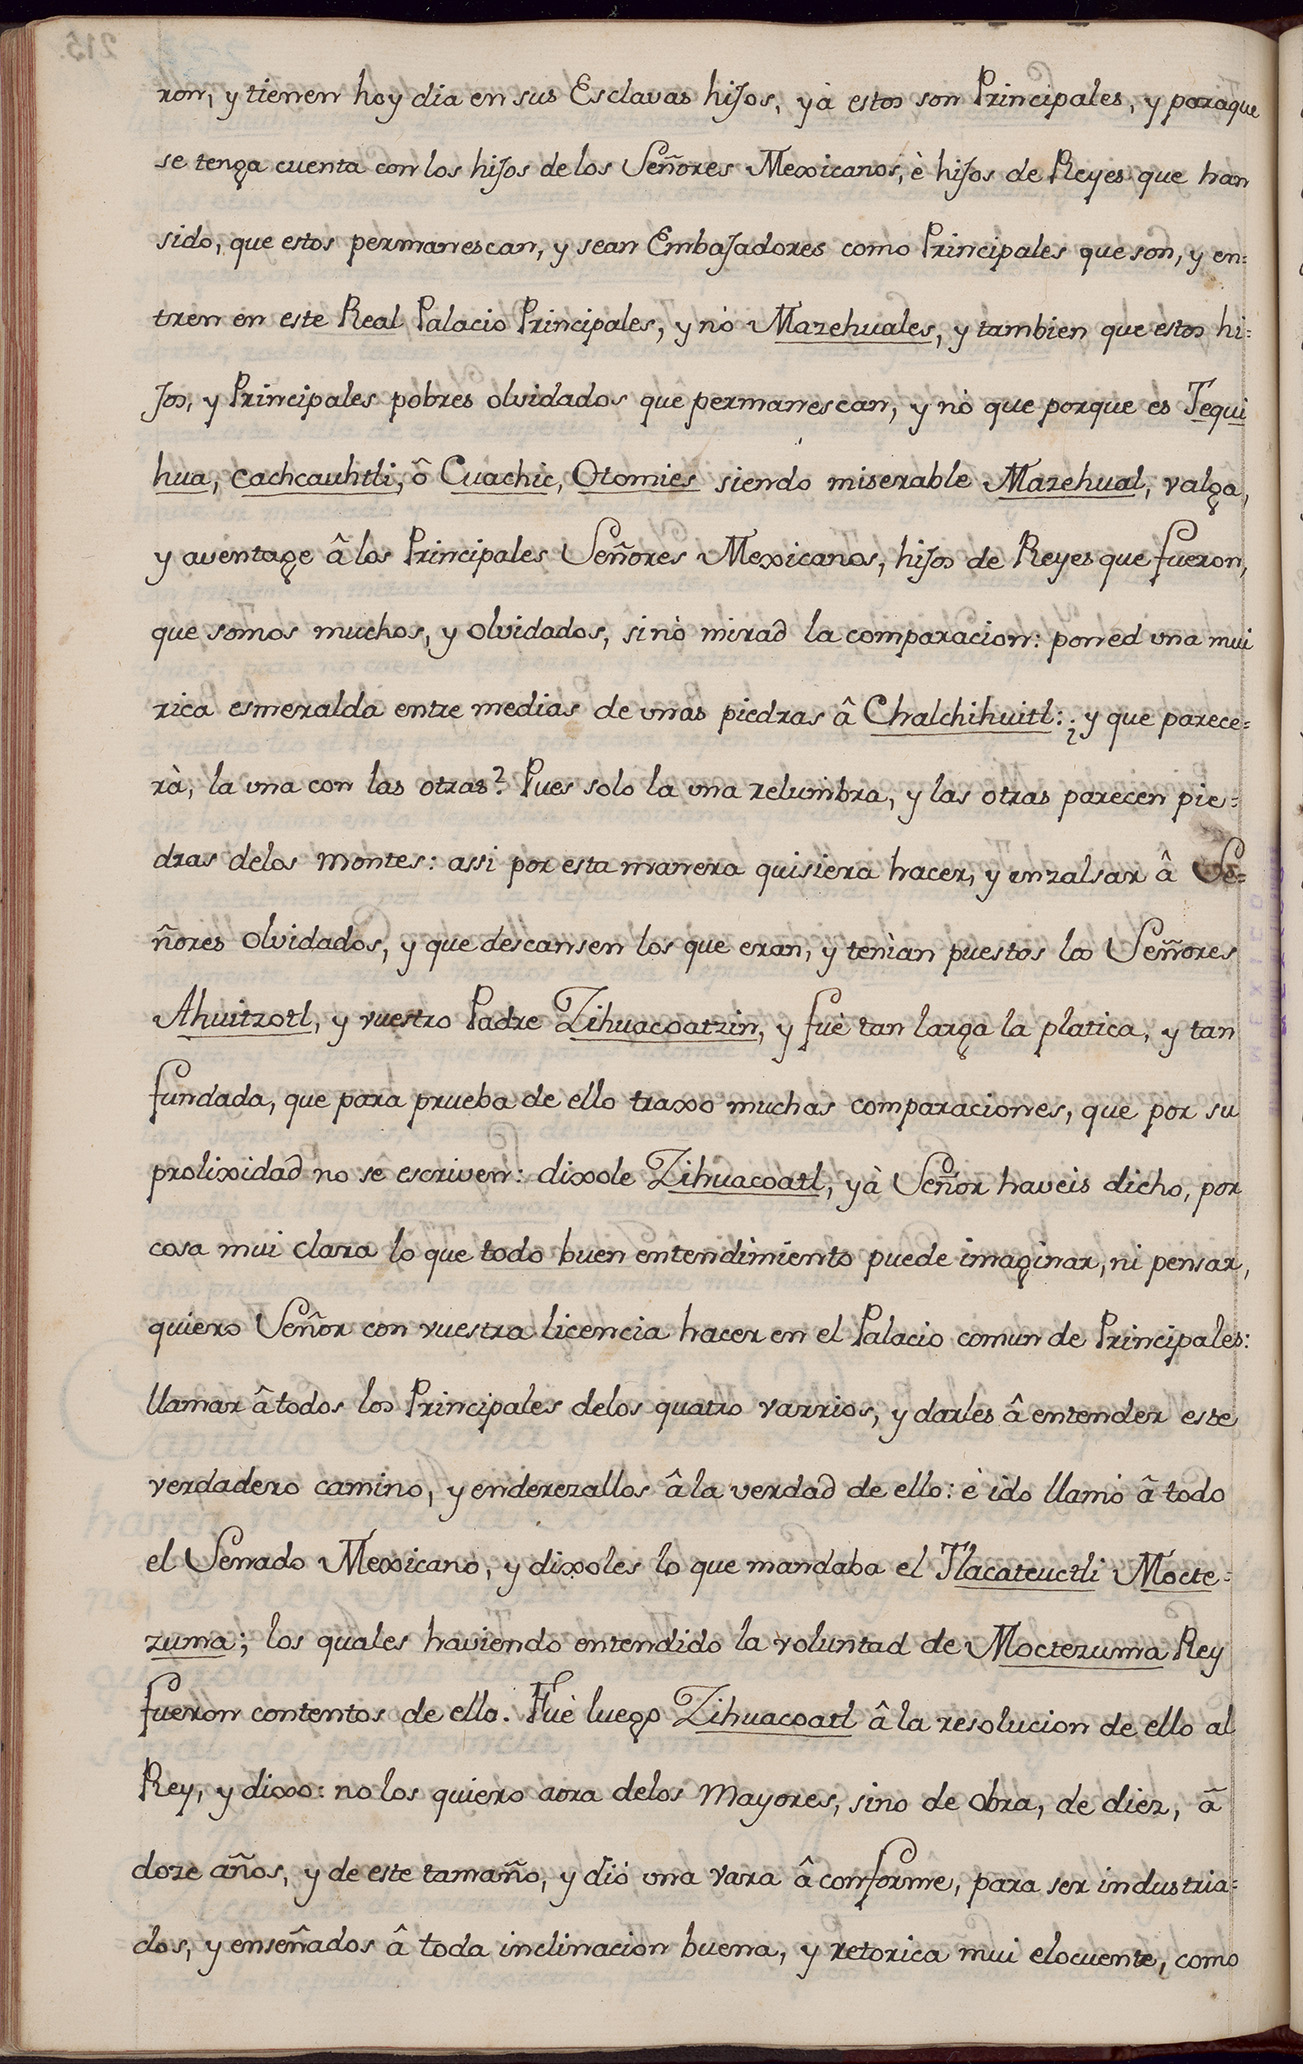 ron, y tienen hoy dia en sus Esclavas hiJos, yà estos son Principales, y paraque
se tenga cuenta con los hiJos de los Señores Mexicanos, è hiJos de Reyes que han
sido, que estos permanescan, y sean EmbaJadores como Principales que son, y en=
tren en este Real Palacio Principales, y nò Mazehuales, y tambien que estos hi=
Jos, y Principales pobres olvidados que permanescan, y nò que porque es Tequi
hua, Cachcauhtli, ô Cuachic, Otomies siendo miserable Mazehual, valga,
y aventage â los Principales Señores Mexicanos, hiJos de Reyes que fueron,
que somos muchos, y olvidados, sinò mirad la comparacion: poned una mui
rica esmeralda entre medias de unas piedras â Chalchihuitl: ¿y que parece=
rà, la una con las otras? Pues solo la una relumbra, y las otras parecen pie=
dras delos montes: assi por esta manera quisiera hacer, y enzalsar â Se=
ñores olvidados, y que descansen los que eran, y tenìan puestos los Señores
Ahuitzotl, y vuestro Padre Zihuacoatzin, y fuè tan larga la platica, y tan
fundada, que para prueba de ello traxo muchas comparaciones, que por su
prolixidad no se escriven: dixole Zihuacoatl, yà Señor haveis dicho, por
cosa mui clara lo que todo buen entendimiento puede imaginar, ni pensar,
quiero Señor con vuestra licencia hacer en el Palacio comun de Principales:
llamar â todos los Principales delos quatro varrios, y darles â entender este
verdadero camino, y enderezallos â la verdad de ello: è ido llamò â todo
el Senado Mexicano, y dixoles lo que mandaba el Tlacateuctli Mocte=
zuma; los quales haviendo entendido la voluntad de Moctezuma Rey
fueron contentos de ello. Fuè luego Zihuacoatl â la resolucion de ello al
Rey, y dixo: no los quiero aora delos mayores, sino de obra, de diez, â
doze años, y de este tamaño, y diò una vara â conforme, para ser industria=
dos, y enseñados â toda inclinacion buena, y retorica mui elocuente, como